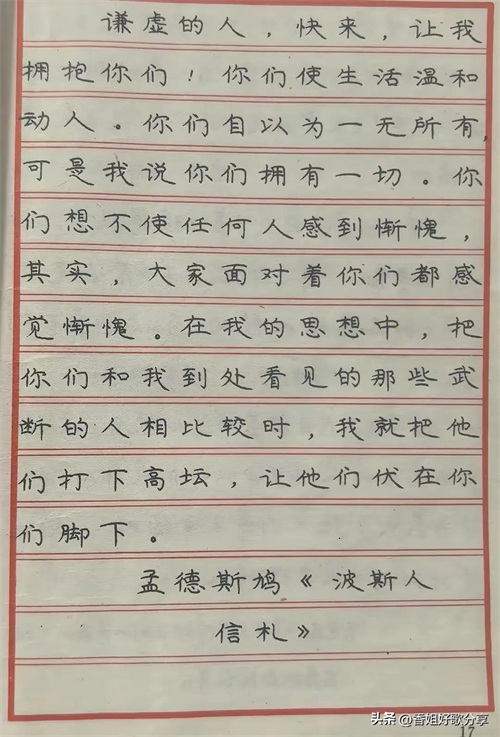 谦虚的人，快来，让我
拥抱你们！你们使生活温和
动人。你们自以为一无所有，
可是我说你们拥有一切。你
们想不使任何人感到惭愧，
其实，大家面对着你们都感
觉惭愧。在我的思想中，把
你们和我到处看见的那些武
断的人相比较时，我就把他
们打下高坛，让他们伏在你
们脚下。
孟德斯鸠《波斯人
信札》
17
头条 @香姐好歌分享